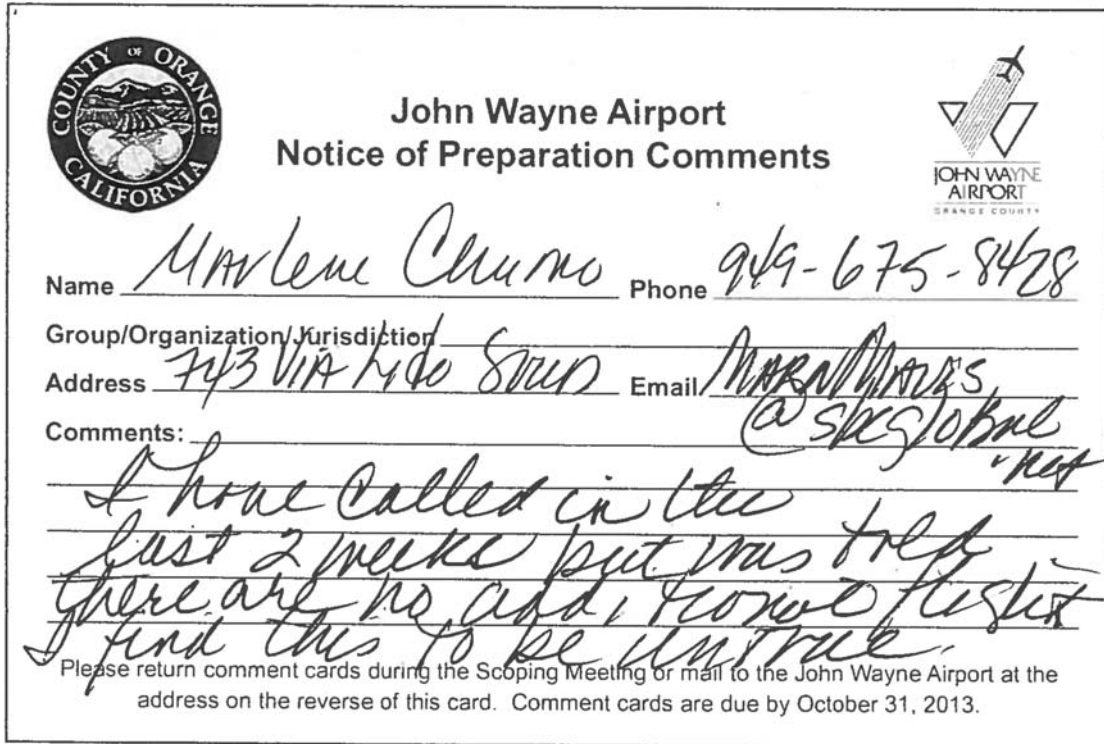 COUNTY OF ORANGE
CALIFORNIA
John Wayne Airport
Notice of Preparation Comments
JOHN WAYNE
AIRPORT
ORANGE COUNTY
Name Marlene Phone 949-675-8428
Group/Organization/Jurisdiction
Address 743 VIA Lido Soud Email
@sbcglobal
.net
Comments:
I have called in the
last 2 weeks but was told
there are no additional flights
I find this to be untrue.
Please return comment cards during the Scoping Meeting or mail to the John Wayne Airport at the
address on the reverse of this card. Comment cards are due by October 31, 2013.